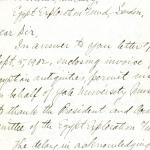 Egypt Exploration Fund, London,
ear Sir,
In answer to your letter of
Sept. 5, 1902, enclosing invoice of
yptian antiquities, permit me
in behalf of Yale University Museum
to thank the President and Com
mittee of the Egypt Exploration Fu
The delay in acknowledging